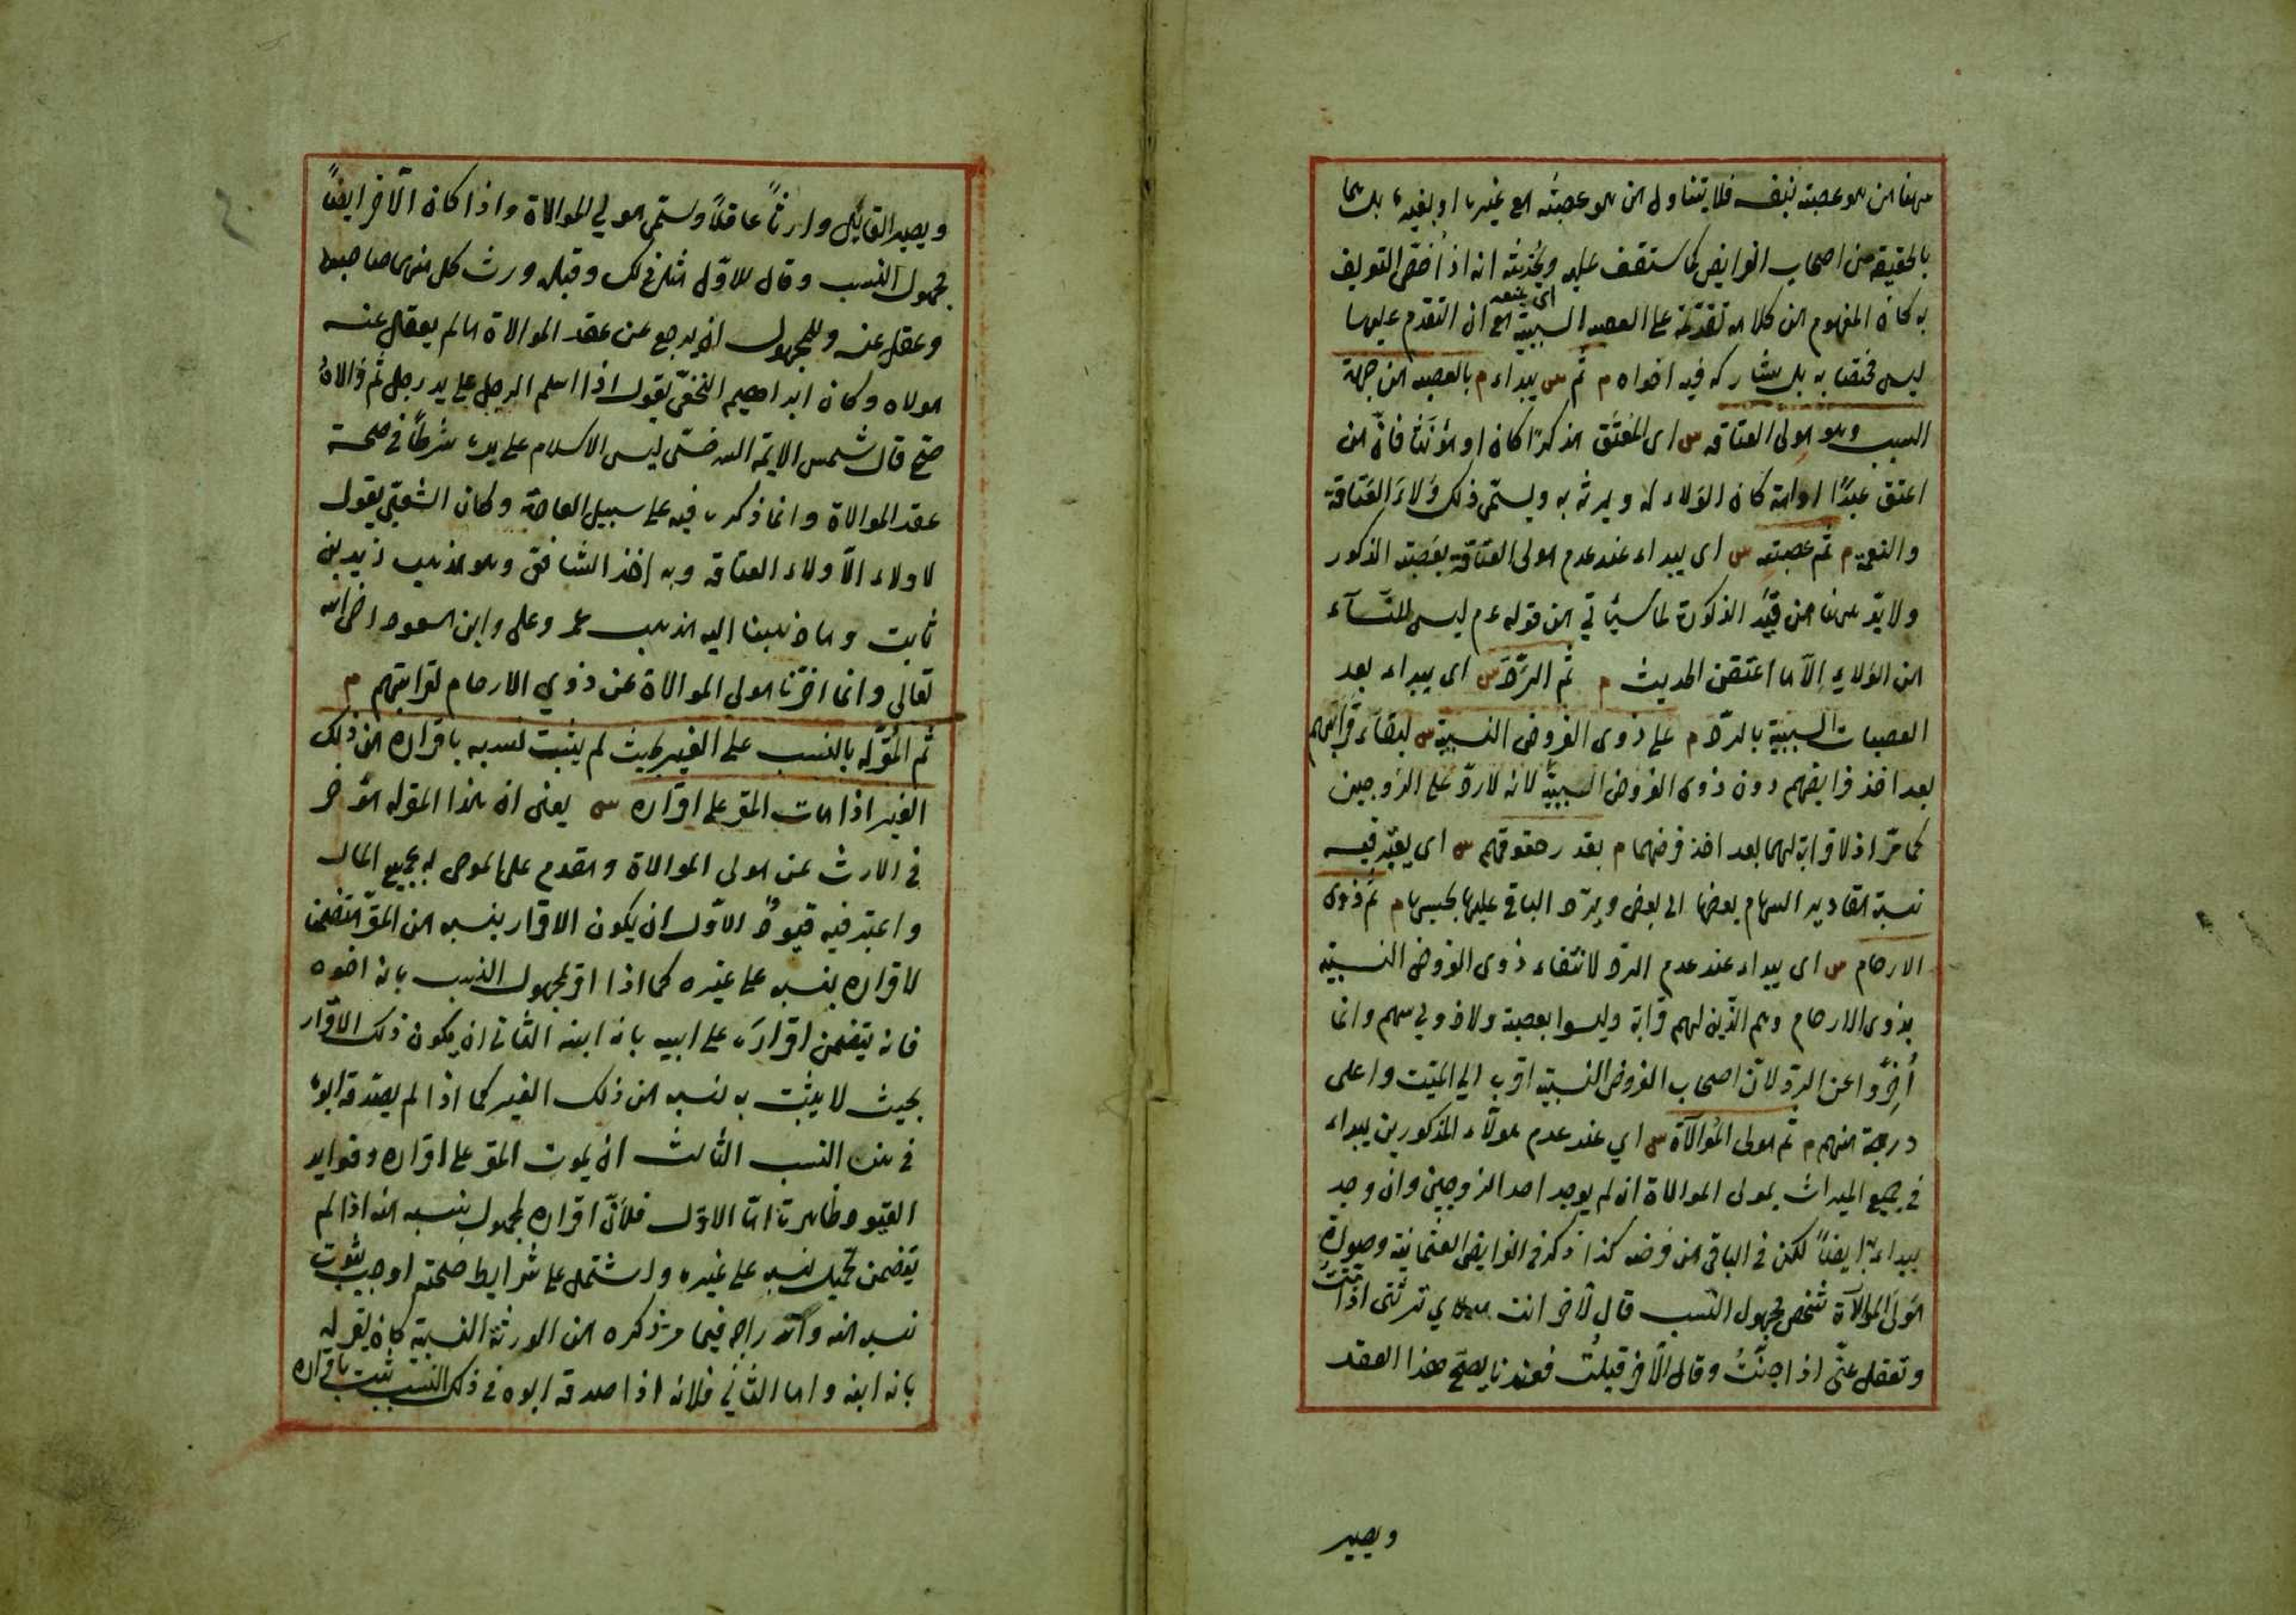 ههنا من هو عصبة بنفسه فلا يتناول من هو عصبة مع غيره او بغيره بل هما
بالحقيقة من اصحاب الفرايض كما ستقف عليه ويخدشه انه اذا خص التعريف
به كان المفهوم من كلامه تقدمه على العصبة السببية اى يمنعه مع ان التقدم عليها
ليس مختصا به بل يشاركه فيه اخواه م ثم س يبداء م بالعصبة من جهة
السبب وهو مولى العتاقه س اى المُعتِق مذكرًا كان او مؤنثا فانّ من
اعتق عبدًا او امة كان الولاء له ويرث به ويسمّى ذلك وَلاءَ العَتاقة
والنعمة م ثم عصبته س اى يبداء عند عدم مولى العتاقة بعصبته الذكور
ولا بدّ ههنا من قَيْد الذكورة لما سيأتي من قوله عم ليس للنسآء
من الولاء إلاّ ما اعتقن الحديث م ثم الردّ س اى يبداء بعد
العصبات السببية بالردّ م على ذوى الفروض النسبية س لبقاء قرابتهم
بعد اخذ فرايضهم دون ذوى الفروض السببيّة لانه لا ردّ على الزوجين
كما مرّ اذ لا قرابة لهما بعد اخذ فرضهما م بقدر حقوقهم س اى يعتبر فيه
نسبة مقادير السهام بعضها الى بعض ويردّ الباقى عليها بحسبها م ثم ذوى
الارحام س اى يبداء عند عدم الرد لانتفاء ذوى الفروض النسبية
بذوى الارحام وهم الّذين لهم قرابة وليسوا بعصبة ولا ذوي سهم وانما
أُخِّروا عن الرد لانّ اصحاب الفروض النسبية اقرب الي الميّت واعلى
درجة منهم م ثم مولى المُوالآة س اي عند عدم هولاء المذكورين يبداء
في جميع الميراث بمولى الموالاة ان لم يوجد احد الزوجين وان وجد
يبداء به ايضاً لكن فى الباقى من فرضه كذا ذكر فى الفرايض العثمانية وصورة
مَولَى الموالآة شخص مجهول النسب قال لآخر انت مولاي ترثنى اذا متُّ
وتعقل عنّى اذا جنَيْتُ وقال الآخر قبلتُ فعندنا يصحّ هذا العقد
ويصير
ويصير القابل وارثاً عاقلاً ويسمّى مولي الموالاة واذا كان الآخر ايضاً
مجهول النسب وقال للاوّل مثل ذلك وقبله ورث كل منهما صاحبه
وعقل عنه وللمجهول ان يرجع عن عقد الموالاة ما لم يعقل عنه
مولاه وكان ابراهيم النخعىّ يقول اذا اسلم الرجل على يد رجل ثم والاهُ
صحّ قال شمس الايمّة السرخسّى ليس الاسلام على يده شرطاً فى صحة
عقد الموالاة وانما ذكره فيه على سبيل العادة وكان الشعبّى يقول
لا ولاء الاّ ولاء العتاقة وبه اخذ الشافعّى وهو مذهب زيد بن
ثابت وما ذهبنا اليه مذهب عمر وعلى وابن مسعود رضى الله
تعالى وانما اخرّنا مولى الموالاة عن ذوي الارحام لقرابتهم م
ثم المُقَرّ له بالنسب على الغير بحيث لم يثبت نسبه باقراره من ذلك
الغير اذا مات المقر على اقراره س يعنى ان هذا المقر له مؤخر
فى الارث عن مولى الموالاة ومقدم على الموصى له بجميع المال
واعتبر فيه قيودٌ الاوّل ان يكون الاقرار بنسبه من المقرّ متضمنا
لاقراره بنسبه على غيره كما اذا اقر لمجهول النسب بانه اخوه
فانه يتضمن اقراره على ابيه بانه ابنه الثانى ان يكون ذلك الاقرار
بحيث لا يثبت به نسبه من ذلك الغير كما اذا لم يصدّقه ابوه
فى هذا النسب الثالث ان يموت المقر على اقراره وفوايد
القيود ظاهرة امّا الاوّل فلأنّ اقراره لمجهول بنسبه منه اذا لم
يتضمن تحميل نسبه على غيره واشتمل على شرايط صحته اوجب ثبوت
نسبه منه واندراجه فيما مر ذكره من الورثة النسبية كان يقر له
بانه ابنه واما الثاني فلانه اذا صدقه ابوه فى ذلك النسب يثبت باقراره